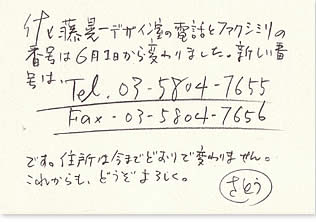 佐藤晃一デザイン室の電話とファクシミリの
番号は6月1日から変わりました。新しい番
号は、
Tel. 03-5804-7655
Fax. 03-5804-7656
です。住所は今までどおりで変わりません。
これからも、どうぞよろしく。
さとう